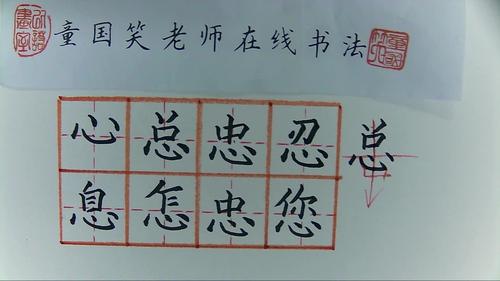 童国笑老师在线书法
心总忠忍总
息怎忠您